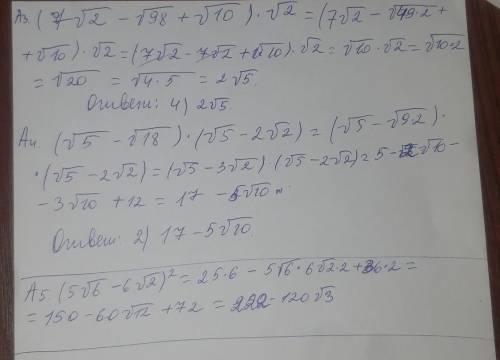 А3. (7√2 − √98 + √10) · √2 = (7√2 − √49·2 +
+ √10) · √2 = (7√2 − 7√2 + √10) · √2 = √10 · √2 = √10·2
= √20 = √4·5 = 2√5.
Ответ: 4) 2√5.
А4. (√5 − √18) · (√5 − 2√2) = (√5 − √9·2) ·
· (√5 − 2√2) = (√5 − 3√2) · (√5 − 2√2) = 5 − 2√10 −
− 3√10 + 12 = 17 − 5√10
Ответ: 2) 17 − 5√10
А5. (5√6 − 6√2)² = 25·6 − 5√6·6√2·2 + 36·2 =
= 150 − 60√12 + 72 = 222 − 120√3